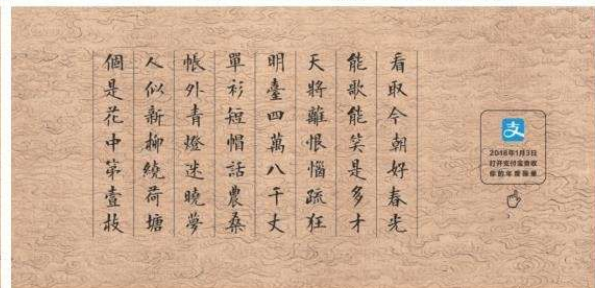 看取今朝好春光
能歌能笑是多才
天將離恨惱疏狂
明臺四萬八千丈
單衫短帽話農桑
帳外青燈迷曉夢
人似新柳繞荷塘
個是花中第壹枝
支
2016年1月3日
打开支付宝查收
你的年度账单